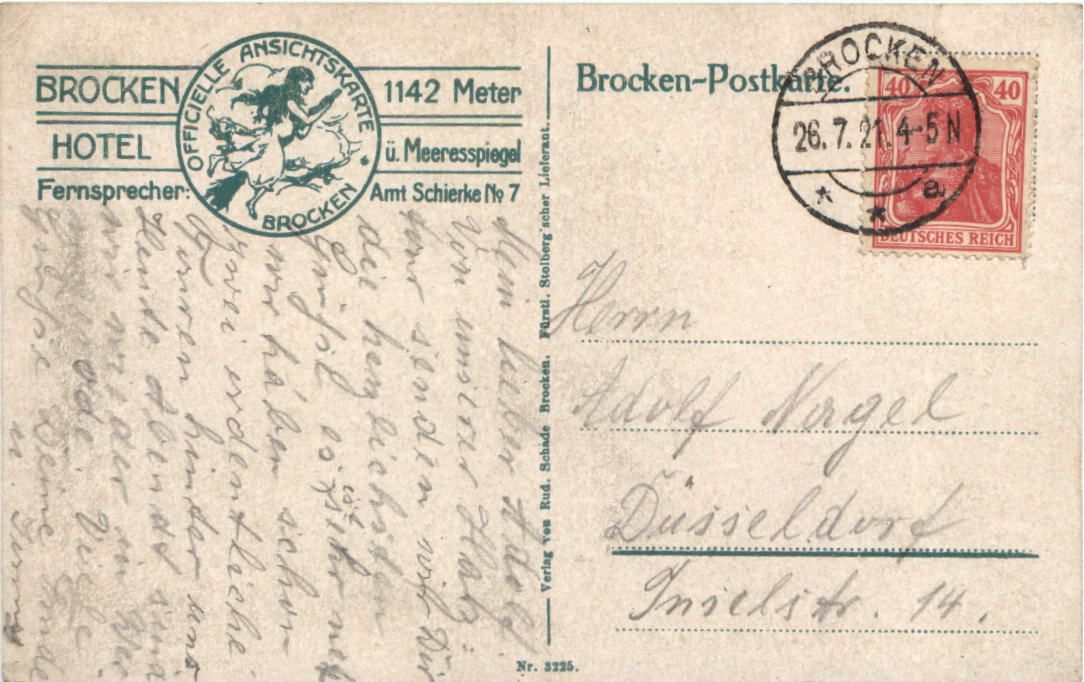 BROCKEN
HOTEL
Fernsprecher:
OFFICIELLE ANSICHTSKARTE
BROCKEN
1142 Meter
ü. Meeresspiegel
Amt Schierke No 7
Brocken-Postkarte.
BROCKEN
26.7.21.4-5N
* * a
40 40
DEUTSCHES REICH
Mein lieber Adolf
Von unsrer Harz
tour senden wir Dir
die herzlichsten
Grüße es ist sehr nett
wir haben schon
zwei ordentliche
Touren hinter uns
Heute Abend sind
wir wieder in
Grüße Deine
u.
Verlag von Rud. Schade Brocken. Fürstl. Stolberg'scher Lieferant.
Herrn
Adolf Nagel
Düsseldorf
Inselstr. 14.
Nr. 3225.